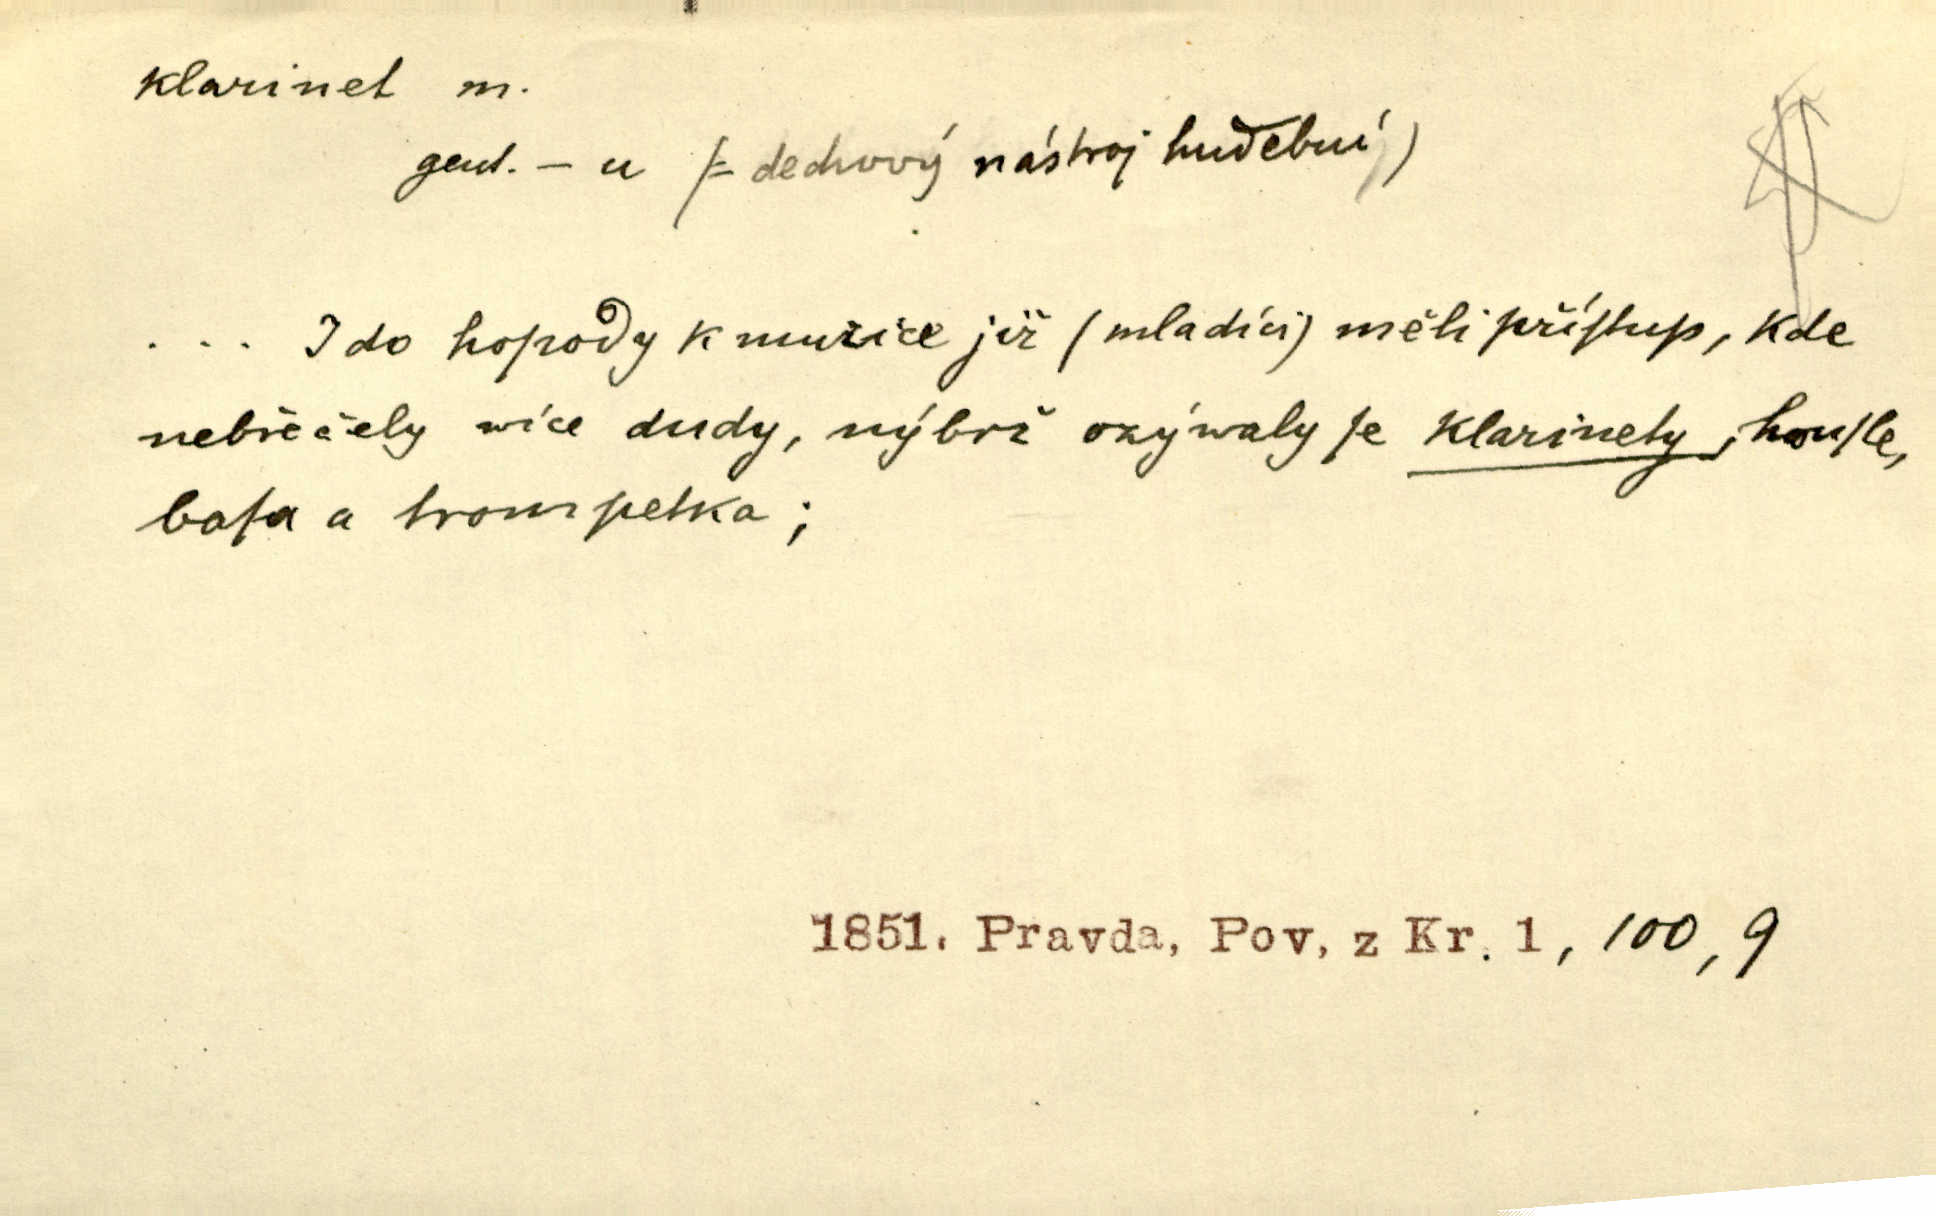 klarinet m.
gent. – u (= dechový nástroj hudební)
. . . I do hospody k muzice již (mladíci) měli přiſtup, kde
nebrečely wíce dudy, nýbrž ozýwaly ſe klarinety, houſle,
baſa a trompetka;
1851. Pravda, Pov. z Kr. 1, 100, 9